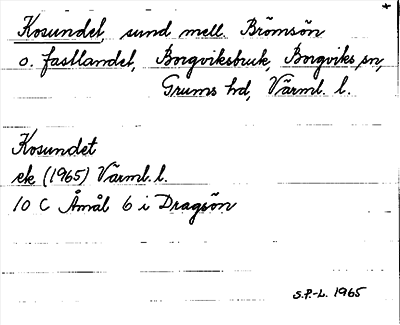 Kosundet, sund mell. Brömsön
o. fastlandet, Borgviksbruk, Borgviks sn,
Grums hd, Värml. l.
Kosundet
ek (1965) Värml. l.
10 C Åmål 6 i Dragsön
S.P.-L. 1965